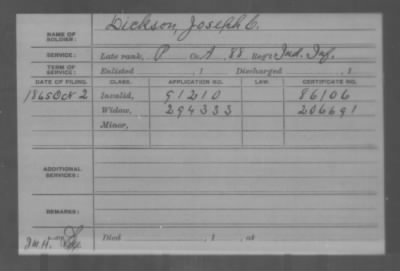 NAME OF SOLDIER: Dickson, Joseph C.
SERVICE: Late rank, P Co. A, 88 Reg't Ind. Inf.
TERM OF SERVICE: Enlisted , 1 Discharged , 1
DATE OF FILING. CLASS. APPLICATION NO. LAW. CERTIFICATE NO.
1865 Oct 2 Invalid, 91210 86106
Widow, 294333 206691
Minor,
ADDITIONAL SERVICES:
REMARKS:
Died , 1 , at